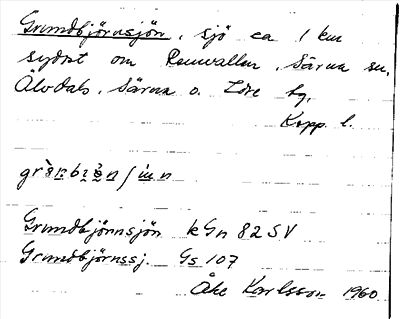 Grundbjörnsjön, sjö ca 1 km
sydost om Renvallen, Särna sn,
Älvdals, Särna o. Idre tg,
Kopp. l.
Grundbjörnnsjön kGn 82 SV
Grundbjörnssj. Gs 107
Åke Karlsson 1960